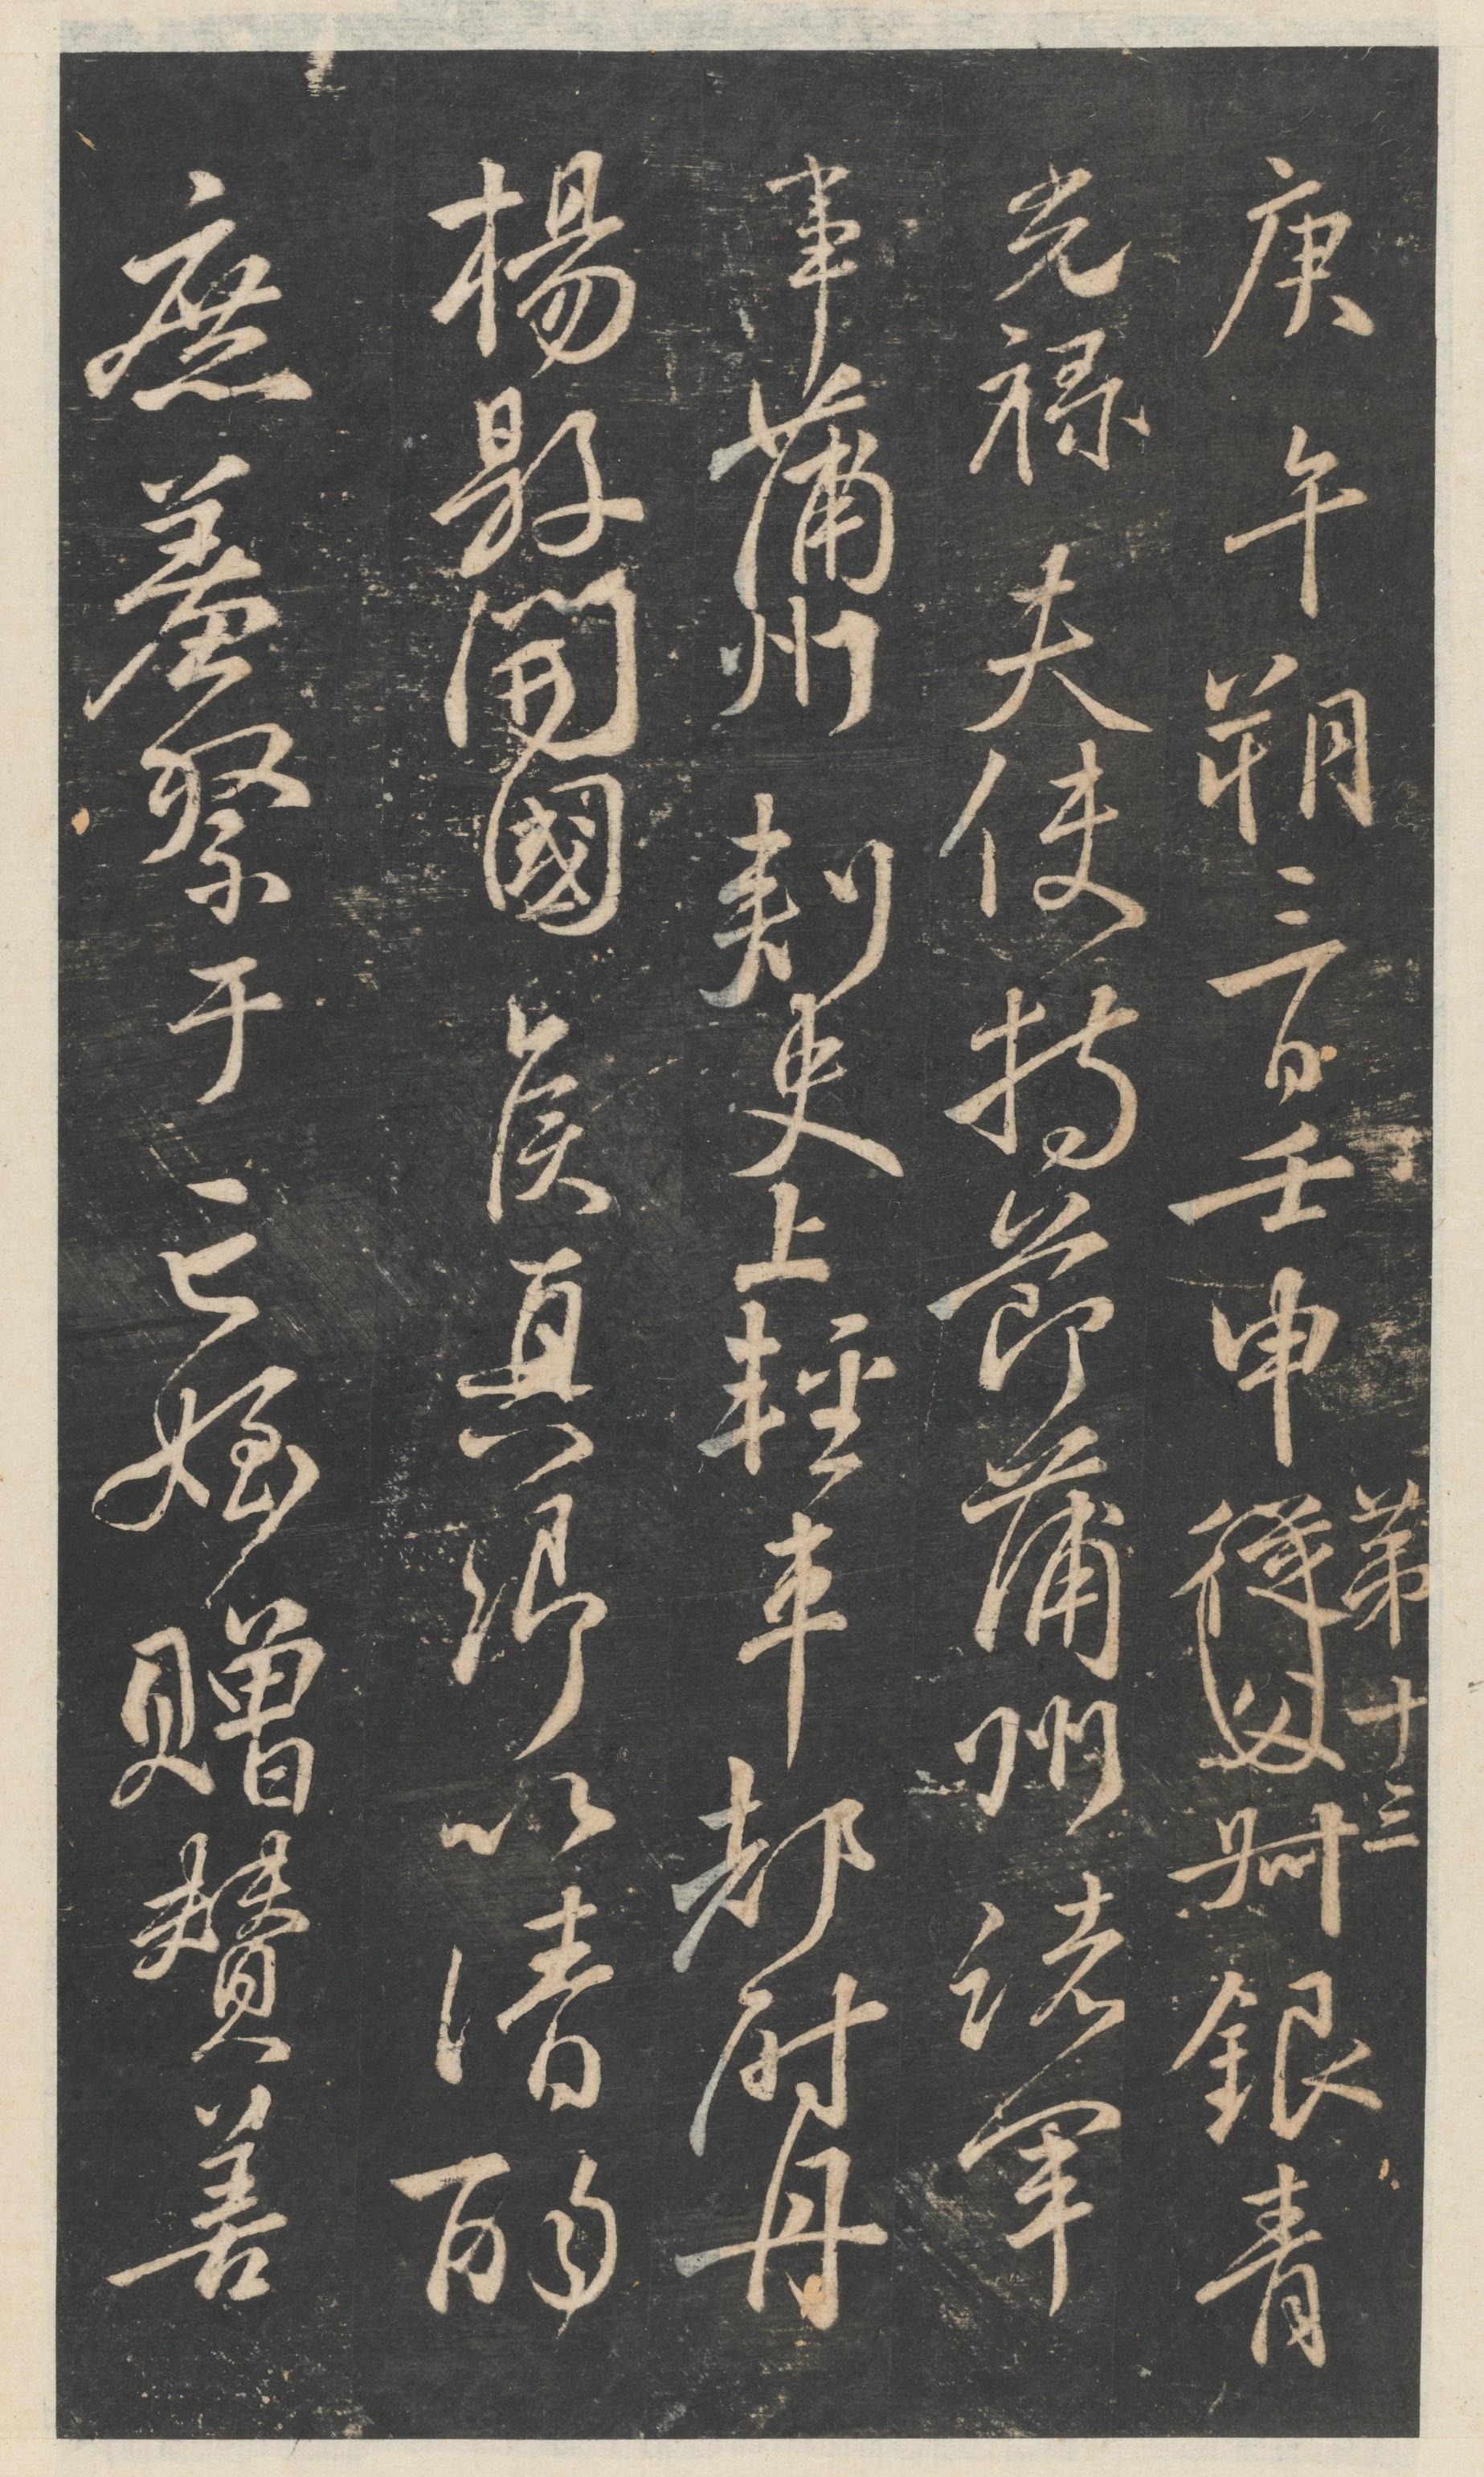 第十三
庚午朔三日壬申從父叔銀青
光祿夫使持節蒲州諸軍
事蒲州刺史上輕車都尉丹
楊縣開國侯真卿以清酌
庶羞祭于亡姪贈贊善